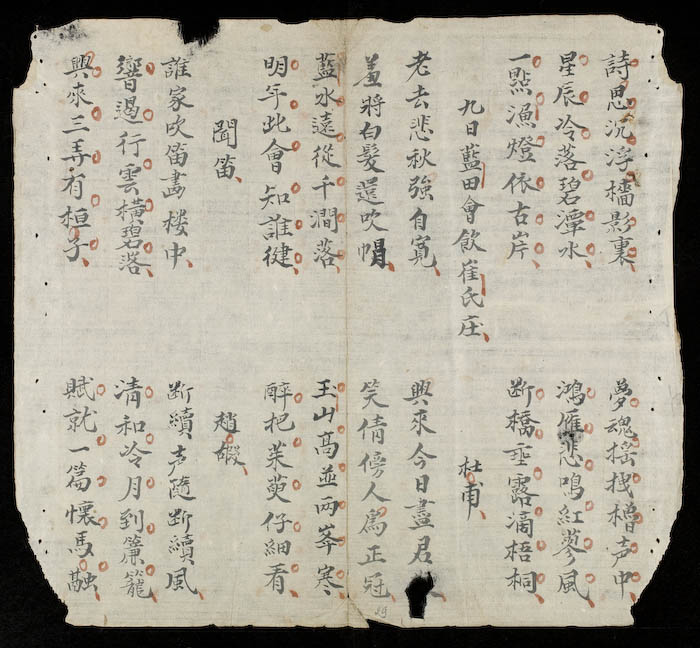 詩思沉浮檣影裏 夢魂搖拽櫓声中
星辰冷落碧潭水 鴻雁悲鳴紅蓼風
一點漁燈依古岸 断橋垂露滴梧桐
九日藍田會飲崔氏庄 杜甫
老去悲秋強自寬 興來今日盡君
羞將白髮還吹帽 笑倩傍人爲正冠
藍水遠從千澗落 玉山高並两峯寒
明年此會知誰健 醉把茱萸仔細看
聞笛 趙嘏
誰家吹笛畵楼中 断續声隨断續風
響遏行雲橫碧落 清和冷月到簾籠
興來三弄有桓子 賦就一篇懷馬融